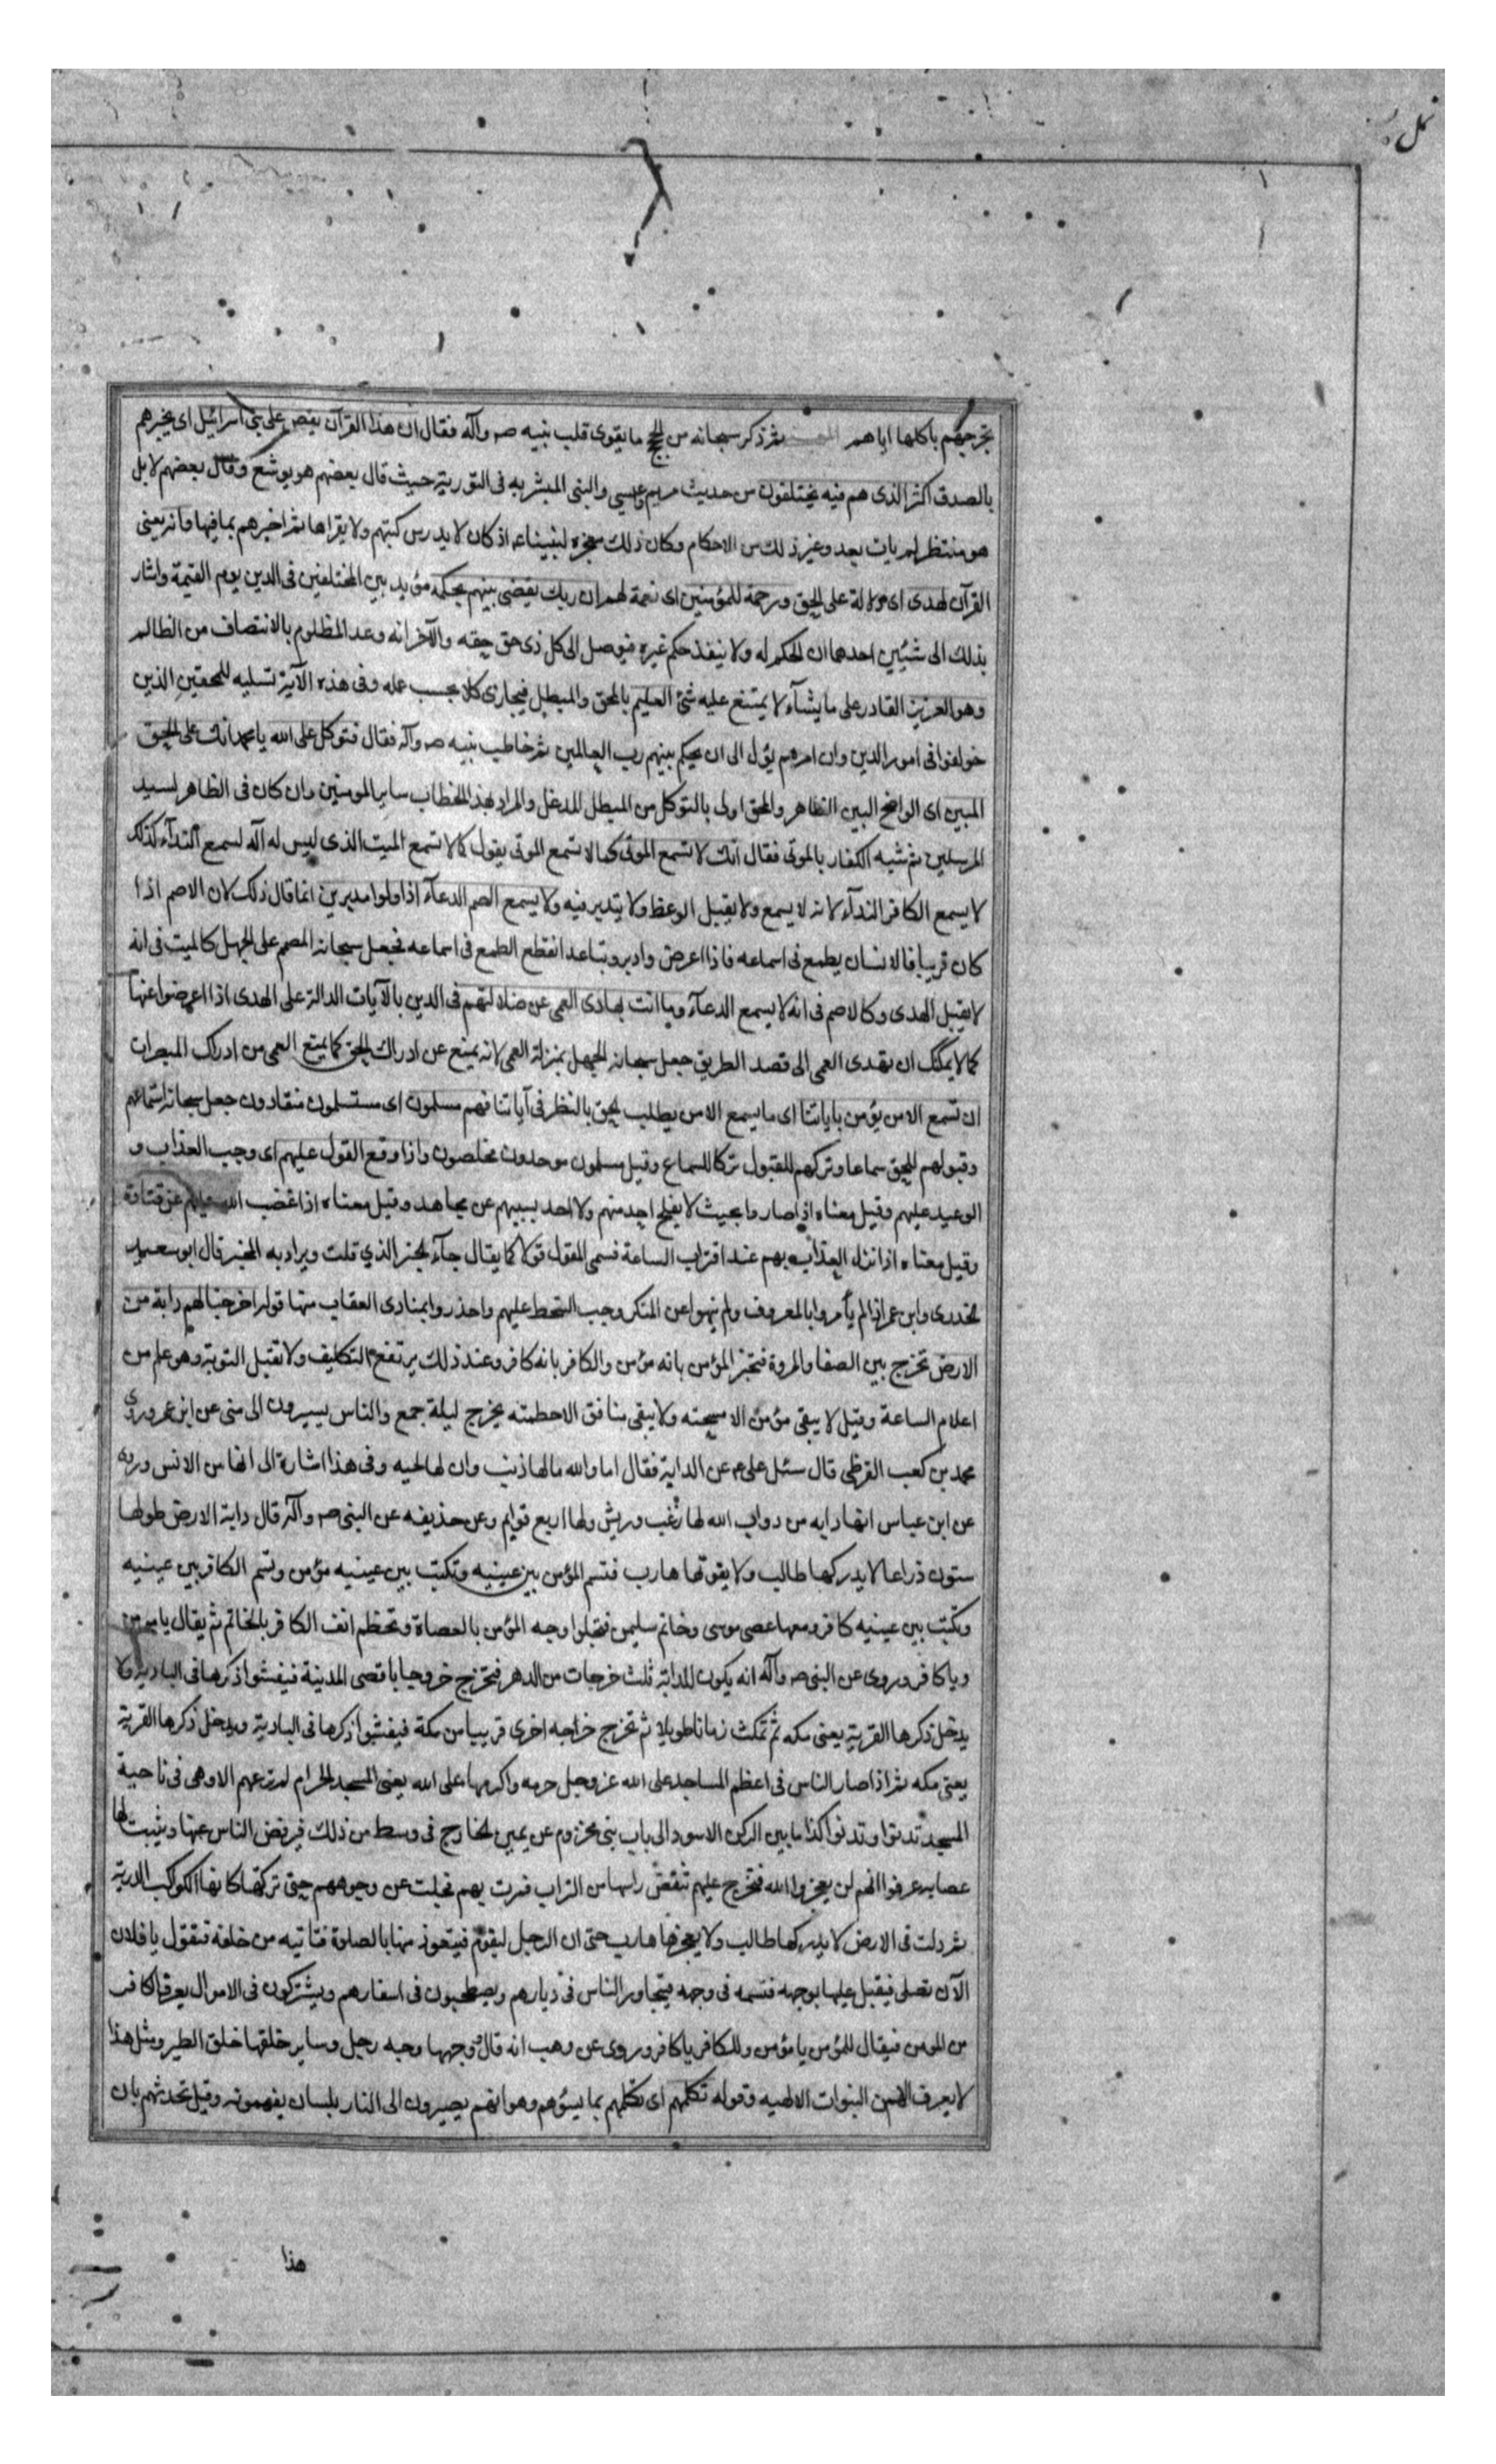 نمل
تجرحهم بأكلها اياهم المعنى ثم ذكر سبحانه من الحجج ما يقوى قلب نبيه صه وآله فقال ان هذا القرآن يقص على بنى اسرائيل اى يخبرهم
بالصدق اكثر الذى هم فيه يختلفون من حديث مريم وعيسى والنبى المبشر به فى التورية حيث قال بعضهم هو يوشع وقال بعضهم لا بل
هو منتظر لم يات بعد وغير ذلك من الاحكام وكان ذلك معجزه لنبينا عم اذ كان لا يدرس كتبهم ولا يقراها ثم اخبرهم بما فيها وانه يعنى
القرآن لهدى اى دلالة على الحق ورحمة للمؤمنين اى نعمة لهم ان ربك يقضى بينهم بحكمه مؤيد بين المختلفين فى الدين يوم القيمة واشار
بذلك الى شئين احدهما ان الحكم له ولا ينفذ حكم غيره فيوصل الى كل ذى حق حقه والآخر انه وعد المظلوم بالانتصاف من الظالم
وهو العزيز القادر على ما يشآء لا يمتنع عليه شئ العليم بالمحق والمبطل فيجازى كلا بحسب عمله وفى هذه الآية تسليه للمحقين الذين
خولفوا فى امور الدين وان امرهم يؤل الى ان يحكم بينهم رب العالمين ثم خاطب نبيه صه وآله فقال فتوكل على الله يا محمد انك على الحق
المبين اى الواضح البين الظاهر والمحق اولى بالتوكل من المبطل المدغل والمراد بهذا الخطاب ساير المومنين وان كان فى الظاهر لسيد
المرسلين ثم شبه الكفار بالموتى فقال انك لا تسمع الموتى كما لا تسمع الموتى يقول كما لا تسمع الميت الذى ليس له آله لسمع النداء كذلك
لا يسمع الكافر الندآء لانه لا يسمع ولا يقبل الوعظ ولا يتدبر فيه ولا يسمع الصم الدعآء اذا ولوا مدبرين انما قال ذلك لان الاصم اذا
كان قريبا فالانسان يطمع فى اسماعه فاذا اعرض وادبر وتباعد انقطع الطمع فى اسماعه فجعل سبحانه المصمم على الجهل كالميت فى انه
لا يقبل الهدى وكالاصم فى انه لا يسمع الدعآء وما انت بهادى العمى عن ضلالتهم فى الدين بالآيات الدالة على الهدى اذا اعرضوا عنها
كما لا يمكنك ان تهدى العمى الى قصد الطريق جعل سبحانه الجهل بمنزلة العمى لانه يمنع عن ادراك الحق كما يمنع العمى من ادراك المبصرات
ان تسمع الا من يؤمن باياتنا اى ما يسمع الا من يطلب الحق بالنظر فى آياتنا فهم مسلمون اى مستسلمون منقادون جعل سبحانه استماعهم
وقبولهم للحق سماعا وتركهم للقبول تركا للسماع وقيل مسلمون موحدون مخلصون واذا وقع القول عليهم اى وجب العذاب و
الوعيد عليهم وقيل معناه اذا صاروا بحيث لا يفلح احد منهم ولا احد بسببهم عن مجاهد وقيل معناه اذا غضب الله عليهم عن قتادة
وقيل معناه اذا نزل العذاب بهم عند اقتراب الساعة فسمى المقول قولا كما يقال جآء الخبر الذي قلت ويراد به المخبر قال ابو سعيد
الخدرى وابن عمر اذا لم يأمروا بالمعروف ولم ينهوا عن المنكر وجب السخط عليهم واحذروا بمنادى العقاب منها قوله اخرجنا لهم دابة من
الارض تخرج بين الصفا والمروة فتخبر المؤمن بانه مؤمن والكافر بانه كافر وعند ذلك يرتفع التكليف ولا تقبل التوبة وهو علم من
اعلام الساعة وقيل لا يبقى مؤمن الا مسحته ولا يبقى منافق الا حطمته يخرج ليلة جمع والناس يسيرون الى منى عن ابن عمر وروى
محمد بن كعب القرظى قال سئل على عم عن الدابة فقال اما والله ما لها ذنب وان لها لحيه وفى هذا اشارة الى انها من الانس وروى
عن ابن عباس انها دابه من دواب الله لها زغب وريش ولها اربع قوايم وعن حذيفه عن النبى صه وآله قال دابة الارض طولها
ستون ذراعا لا يدركها طالب ولا يفوتها هارب فتسم المؤمن بين عينيه وتكتب بين عينيه مؤمن وتسم الكافر بين عينيه
وتكتب بين عينيه كافر ومعها عصى موسى وخاتم سليمن فتجلوا وجه المؤمن بالعصاة وتحطم انف الكافر بالخاتم ثم يقال يا مومن
ويا كافر وروى عن النبى صه وآله انه يكون للدابة ثلث خرجات من الدهر فتخرج خروجا باقصى المدينة فيفشوا ذكرها فى البادية ولا
يدخل ذكرها القرية يعنى مكه ثم تمكث زمانا طويلا ثم تخرج خراجه اخرى قريبا من مكة فيفشوا ذكرها فى البادية ويدخل ذكرها القرية
يعنى مكه ثم اذا صار الناس فى اعظم المساجد على الله عز وجل حرمه واكرمها على الله يعنى المسجد الحرام لم ترعهم الا وهى فى ناحية
المسجد تدنوا وتدنوا كذا ما بين الركن الاسود الى باب بنى مخزوم عن يمين الخارج فى وسط من ذلك فيرفض الناس عنها ويثبت لها
عصابه عرفوا انهم لن يعجزوا الله فتخرج عليهم تنفض راسها من التراب فمرت بهم فجلت عن وجوههم حتى تركتها كانها الكواكب الدرية
ثم ولت فى الارض لا يدركها طالب ولا يعجزها هارب حتى ان الرجل ليقوم فيتعوذ منها بالصلوة فتاتيه من خلفه فتقول يا فلان
الآن تصلى فيقبل عليها بوجهه فتسمه فى وجهه فيتجاور الناس فى ديارهم ويصطحبون فى اسفارهم ويشتركون فى الاموال يعرف الكافر
من المومن فيقال للمؤمن يا مؤمن وللكافر يا كافر وروى عن وهب انه قال وجهها وجه رجل وساير خلقها خلق الطير ومثل هذا
لا يعرف الا من النبوات الالهيه وقوله تكلمهم اى تكلمهم بما يسؤهم وهو انهم يصيرون الى النار بلسان يفهمونه وقيل تحدثهم بان
هذا